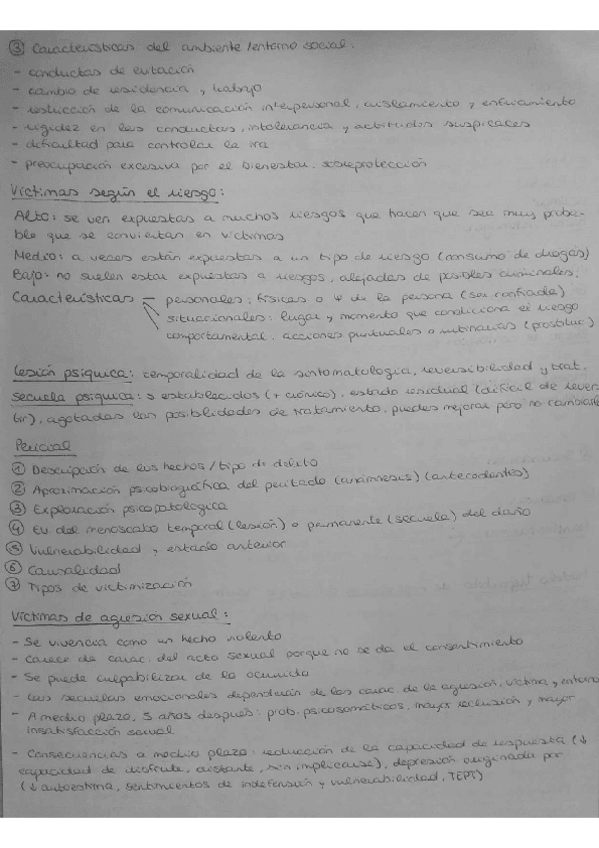 ③ Características del ambiente/entorno social:
- conductas de evitación
- cambio de residencia y trabajo
- restricción de la comunicación interpersonal, aislamiento y enfriamiento
- rigidez en las conductas, intolerancia y actitudes suspicaces
- dificultad para controlar la ira
- preocupación excesiva por el bienestar. sobreprotección
Víctimas según el riesgo:
Alto: se ven expuestas a muchos riesgos que hacen que sea muy proba-
ble que se conviertan en víctimas
Medio: a veces están expuestas a un tipo de riesgo (consumo de drogas)
Bajo: no suelen estar expuestas a riesgos, alejadas de posibles criminales.
Características — personales: físicas o ψ de la persona (ser confiada)
situacionales: lugar y momento que condiciona el riesgo
comportamental: acciones puntuales o rutinarias (prostituc)
Lesión psíquica: temporalidad de la sintomatología, reversibilidad y trat.
Secuela psíquica: s establecidos (+ crónico), estado residual (difícil de rever
tir), agotadas las posiblidades de tratamiento, puedes mejorar pero no cambiarla
Pericial
① Descripción de los hechos/tipo de delito
② Aproximación psicobiográfica del peritado (anamnesis) (antecedentes)
③ Exploración psicopatológica
④ Ev del menoscabo temporal (lesión) o permanente (secuela) del daño
⑤ Vulnerabilidad y estado anterior
⑥ Causalidad
⑦ Tipos de victimización
Víctimas de agresión sexual:
- Se vivencia como un hecho violento
- Carece de carac. del acto sexual porque no se da el consentimiento
- Se puede culpabilizar de lo ocurrido
- Las secuelas emocionales dependerán de las carac. de la agresión, víctima y entorno
- A medio plazo, 5 años después: prob. psicosomáticos, mayor reclusión y mayor
insatisfacción sexual
- Consecuencias a medio plazo: reducción de la capacidad de respuesta (↓
capacidad de disfrute, distante, sin implicarse), depresión originada por
(↓ autoestima, sentimientos de indefensión y vulnerabilidad, TEPT)